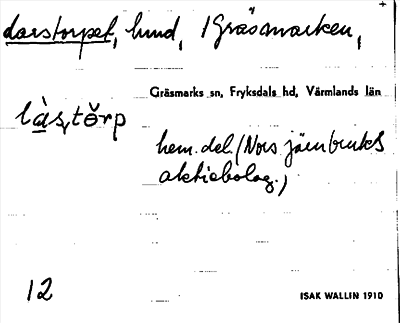 larstorpet, hmd, /Gräsmarken,
Gräsmarks sn, Fryksdals hd, Värmlands län
làs,tŏrp
hem. del. (Nors järnbruks
aktiebolag.)
12
ISAK WALLIN 1910